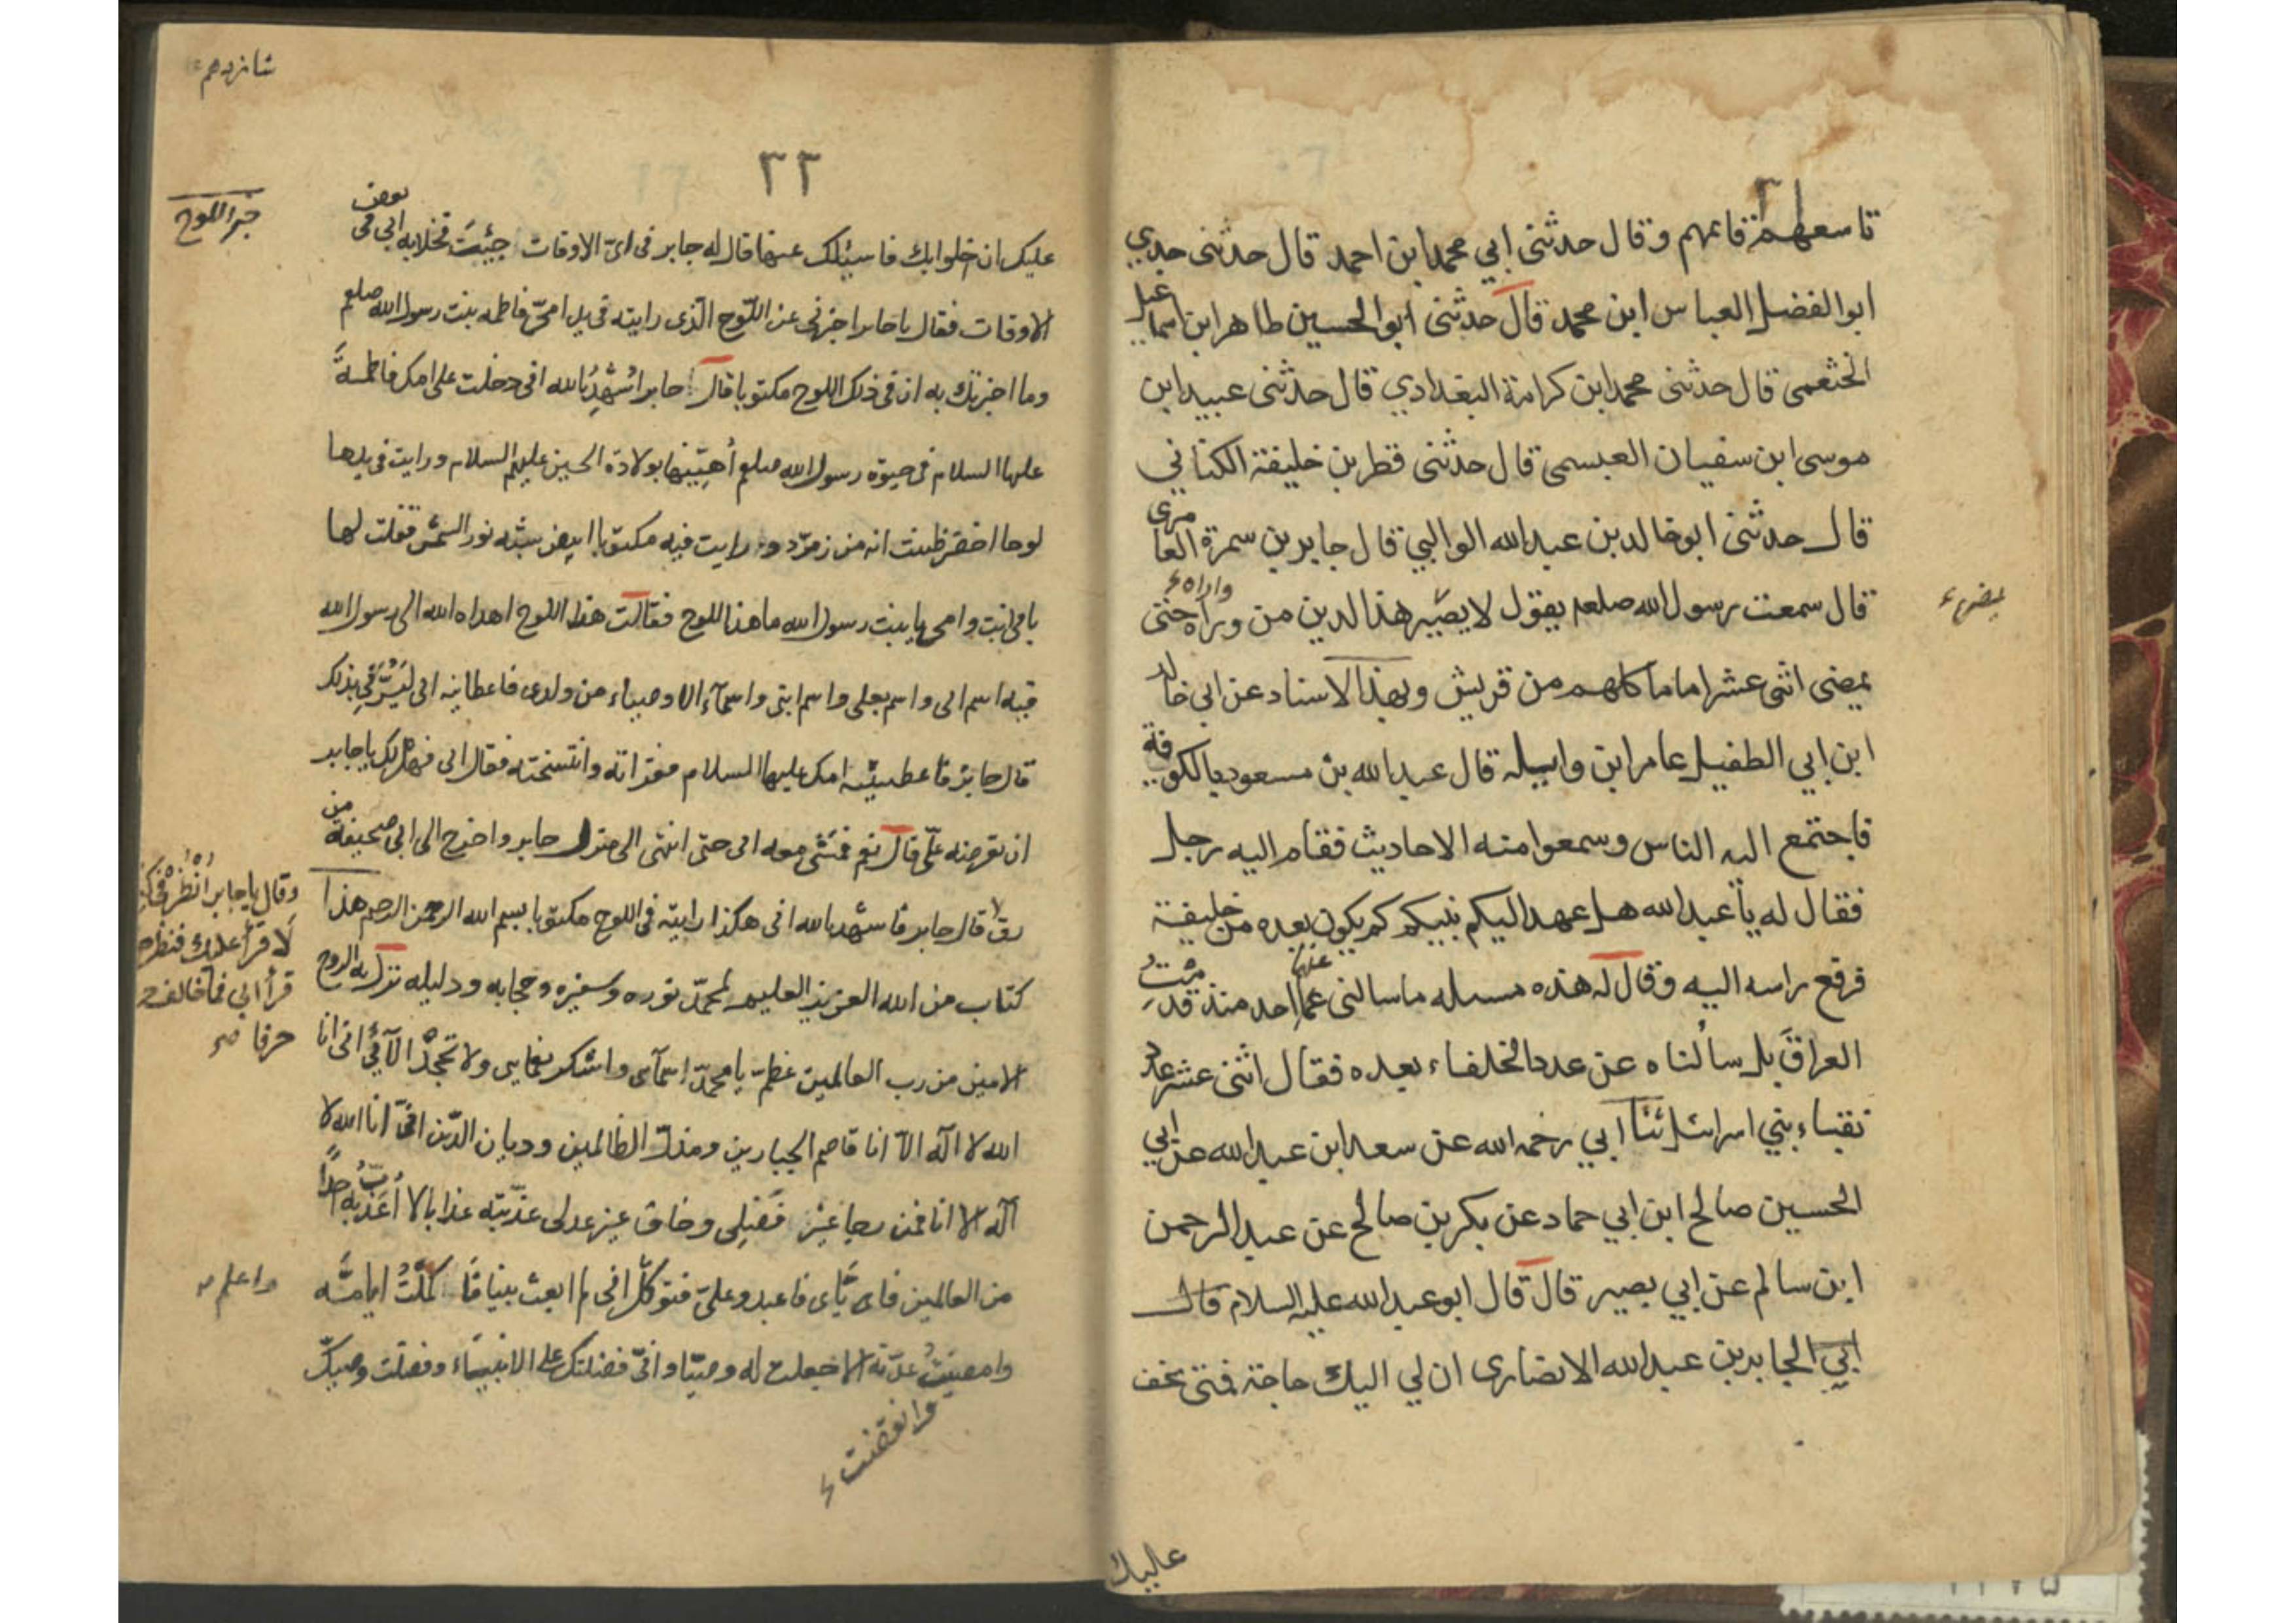 تاسعهم قائمهم وقال حدثنى ابي محمد ابن احمد قال حدثنى جدي
ابو الفضل العباس ابن محمد قال حدثنى ابو الحسين طاهر ابن اسماعيل
الخثعمى قال حدثنى محمد ابن كرامة البغدادي قال حدثنى عبيد ابن
موسى ابن سفيان العبسمى قال حدثنى قطر بن خليفة الكناني
قال حدثنى ابو خالد بن عبد الله الوالبي قال جابر بن سمرة العامرى
قال سمعت رسول الله صلعم يقول لا يضير هذا لدين من وراه حتى
واراه
يمضى اثنى عشر اماما كلهم من قريش وبهذا الاسناد عن ابي خالد
ابن ابي الطفيل عامر ابن واسله قال عبد الله بن مسعود بالكوفة
فاجتمع اليه الناس وسمعوا منه الاحاديث فقام اليه رجل
فقال له يا عبد الله هل عهد اليكم نبيكم كم يكون بعده من خليفة
فرفع راسه اليه وقال له هذه مسئله ما سالنى عنها احد منذ قدمت
العراق بل سألناه عن عدد الخلفاء بعده فقال اثنى عشر عدد
نقباء بني اسرائيل ثنا ابي رحمه الله عن سعد ابن عبد الله عن ابي
الحسين صالح ابن ابي حماد عن بكر بن صالح عن عبد الرحمن
ابن سالم عن ابي بصير قال قال ابو عبد الله عليه السلام قال
ابي الجابر بن عبد الله الانصارى ان لي اليك حاجة فمتى يخف
عليك
شانزدهم
٣٢
خبر اللوح
عليك ان اخلوا بك فاسئلك عنها قال له جابر فى اىّ الاوقات جئت فخلا به ابى فى بعض
الاوقات فقال يا جابر اخبرنى عن اللّوح الّذى رايته فى يد امّى فاطمه بنت رسول الله صلعم
وما اخبرتك به ان فى ذلك اللوح مكتوبا قال جابر اشهد بالله انى دخلت على امك فاطمة
عليها السلام فى حيوة رسول الله صلعم اهنّيها بولادة الحسين عليهم السلام ورايت فى يدها
لوحا اخضر ظننت انه من زمرّد ورايت فيه مكتوبا ابيض شبه نور الشمس فقلت لها
بابى انت وامى يا بنت رسول الله ما هذا اللوح فقالت هذا اللوح اهداه الله الى رسول الله
فيه اسم ابى واسم بعلى واسم ابنى واسمآء الاوصياء من ولدى فاعطانيه ابى ليسرّنى بذلك
قال جابر فاعطيتنيه امك عليها السلام فقراته وانتسخته فقال ابى فهل لك يا جابر
ان تعرضه علىّ قال نعم فمشى معه ابى حتى انتهى الى منزل جابر واخرج الى ابى صحيفة من
رق قال جابر فاشهد بالله انى هكذا رايته فى اللوح مكتوبا بسم الله الرحمن الرحيم هذا
وقال يا جابر انظر فى كتابك
لاقرأ عليك فنظر
قرأ ابي فما خالف
حرفا صح
كتاب من الله العزيز العليم لمحمّد نوره وسفيره وحجابه ودليله نزل به الروح
الامين من رب العالمين عظّم يا محمّد اسمآى واشكر نعمايى ولا تجحد آلآئى انى انا
الله لا اله الاّ انا قاصم الجبارين ومذل الظالمين وديان الدّين انّى انا الله لا
اله الا انا فمن رجا غير فضلى وخاف غير عدلى عذّبته عذابا لا اعذّبه احداً
من العالمين فايّاى فاعبد وعلىّ فتوكّل انى لم ابعث نبيا فا كمّلت ايامه
واعلم
وامضيت عدّته الا جعلت له وصيّا وانّى فضلتك على الانبياء وفضلت وصيك
وانقضت